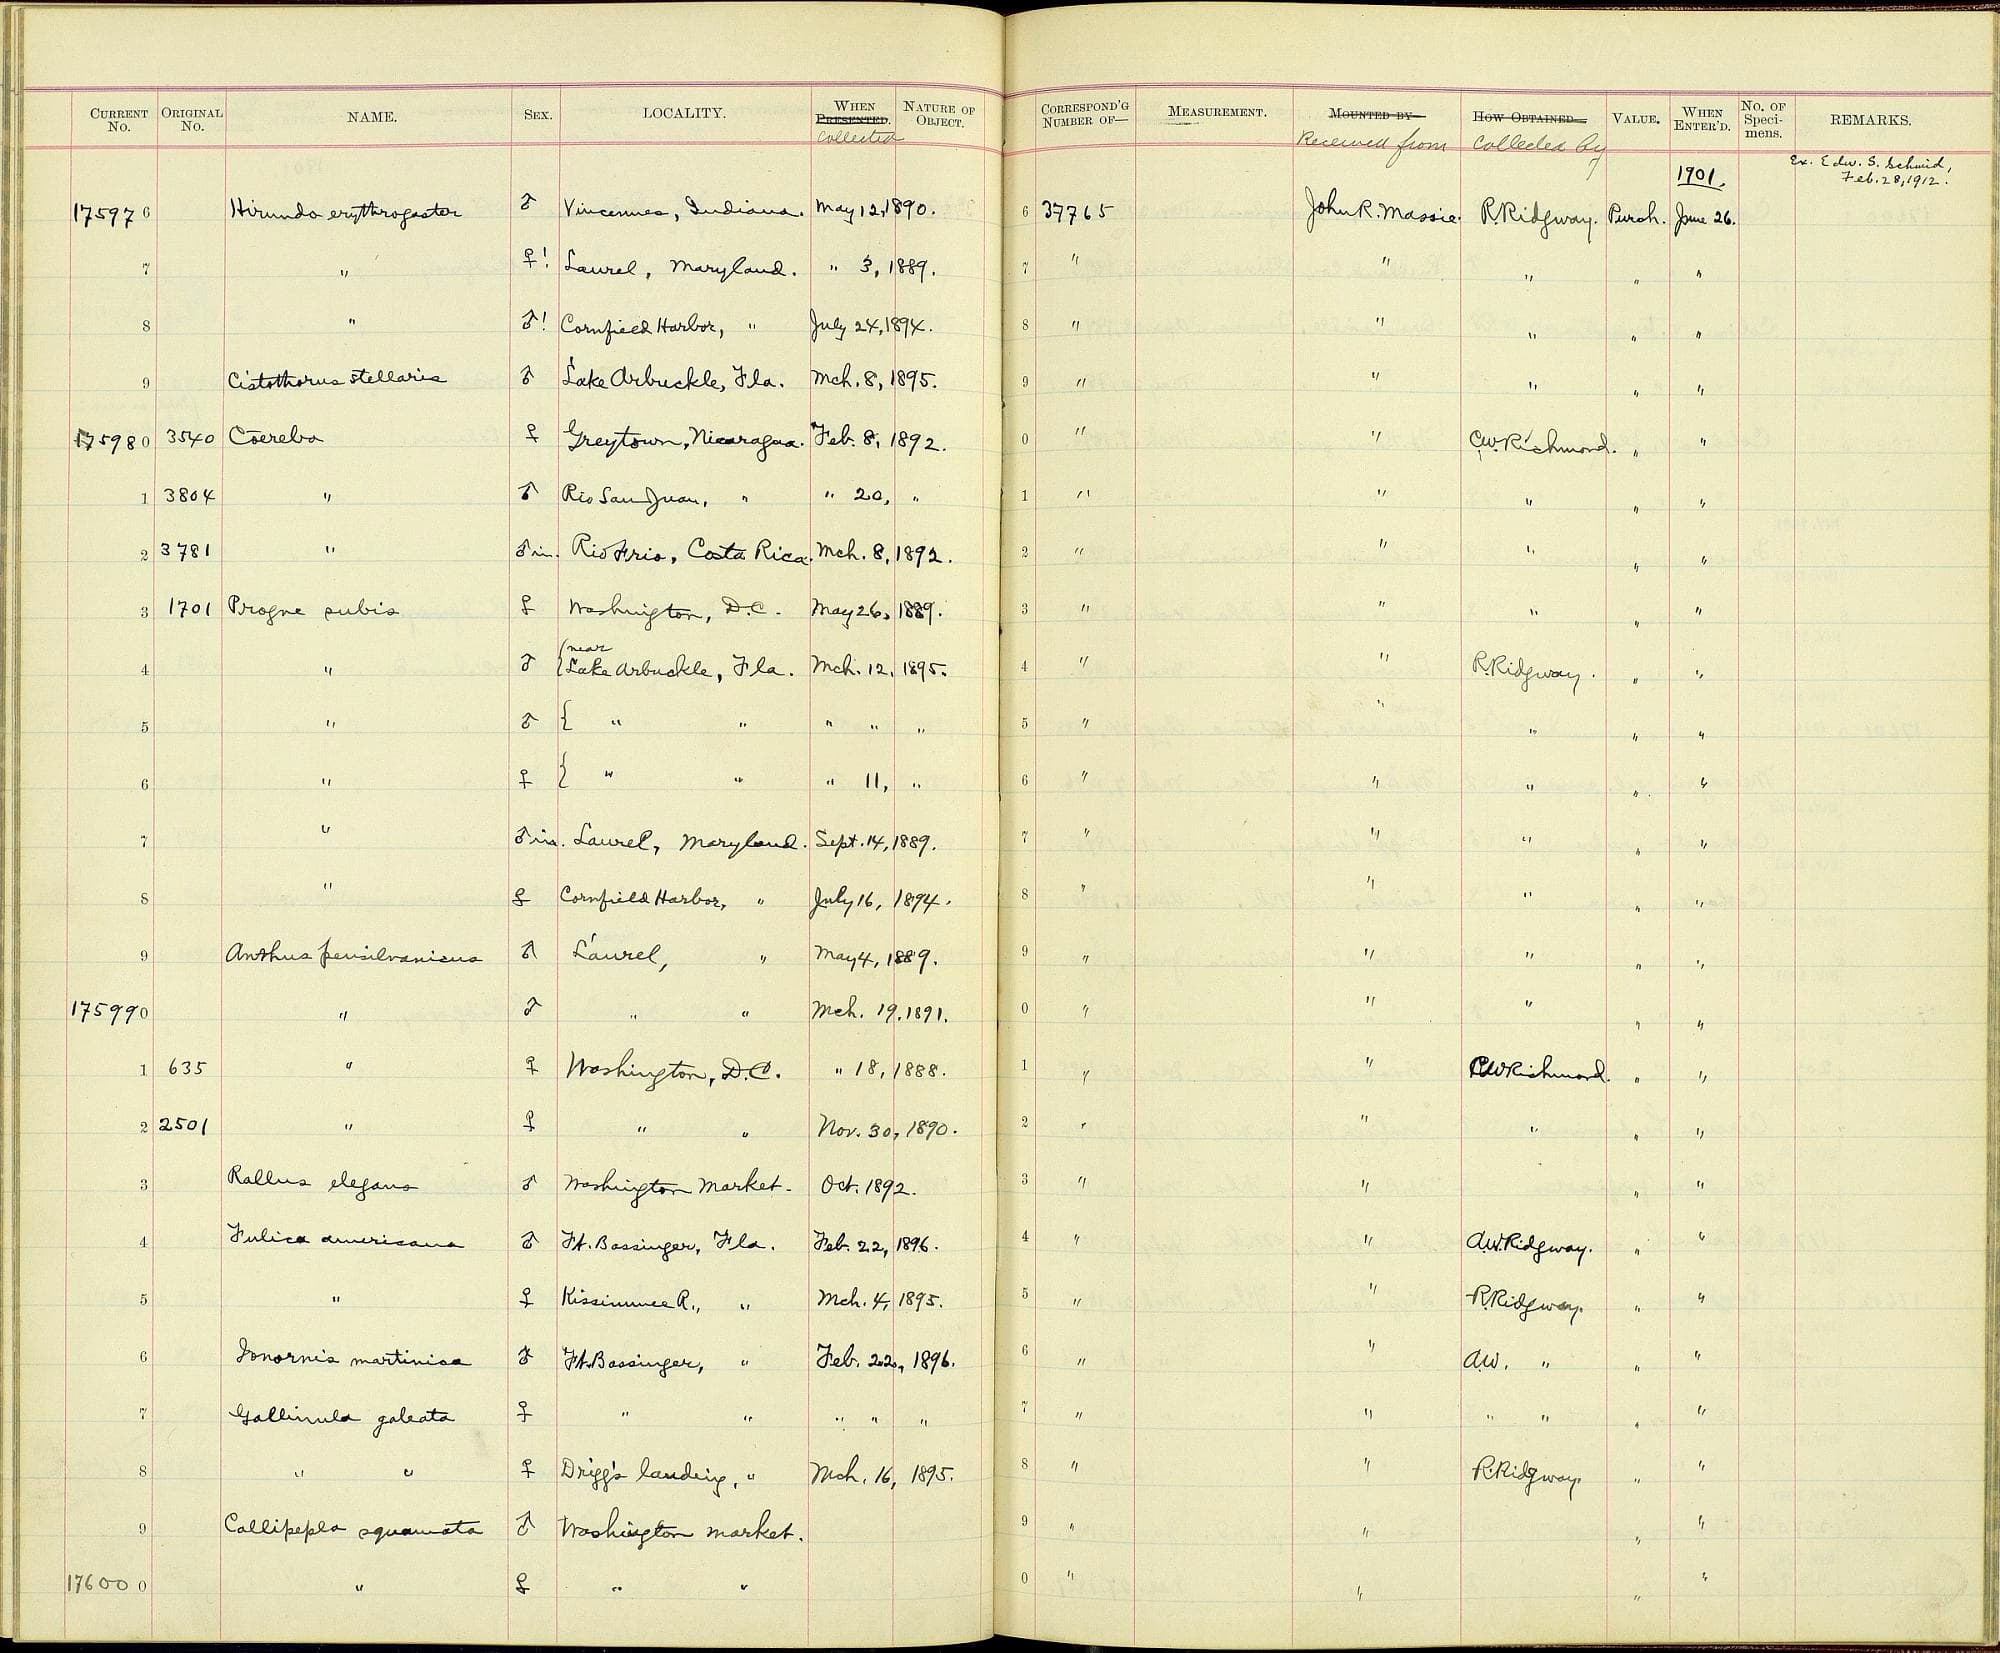 CURRENT No. ORIGINAL No. NAME. SEX. LOCALITY. WHEN PRESENTED. collected NATURE OF OBJECT. CORRESPOND'G NUMBER OF— MEASUREMENT. MOUNTED BY Received from HOW OBTAINED Collected by VALUE. WHEN ENTER'D. No. OF Speci-mens. REMARKS.
1901. Ex. Edw. S. Schmid, Feb. 28, 1912.
175976 Hirundo erythrogaster ♂ Vincennes, Indiana. May 12, 1890. 6 37765 John R. Massie. R. Ridgway. Purch. June 26.
7 " ♀! Laurel, Maryland. " 3, 1889. 7 " " " " "
8 " ♂! Cornfield Harbor, " July 24, 1894. 8 " " " " "
9 Cistothorus stellaris ♂ Lake Arbuckle, Fla. Mch. 8, 1895. 9 " " " " "
175980 3540 Coereba ♀ Greytown, Nicaragua. Feb. 8, 1892. 0 " " C.W. Richmond. " "
1 3804 " ♂ Rio San Juan, " " 20, " 1 " " " " "
2 3781 " ♂ im. Rio Frio, Costa Rica. Mch. 8, 1892. 2 " " " " "
3 1701 Progne subis ♀ Washington, D.C. May 26, 1889. 3 " " " " "
4 " ♂ { near Lake Arbuckle, Fla. Mch. 12, 1895. 4 " " R. Ridgway. " "
5 " ♂ { " " " " " 5 " " " " "
6 " ♀ { " " " 11, " 6 " " " " "
7 " ♂ im. Laurel, Maryland. Sept. 14, 1889. 7 " " " " "
8 " ♀ Cornfield Harbor, " July 16, 1894. 8 " " " " "
9 Anthus pensilvanicus ♂ Laurel, " May 4, 1889. 9 " " " " "
175990 " ♂ " " Mch. 19, 1891. 0 " " " " "
1 635 " ♀ Washington, D.C. " 18, 1888. 1 " " C.W. Richmond. " "
2 2501 " ♀ " " Nov. 30, 1890. 2 " " " " "
3 Rallus elegans ♂ Washington Market. Oct. 1892. 3 " " " "
4 Fulica americana ♂ Ft. Bassinger, Fla. Feb. 22, 1896. 4 " " A.W. Ridgway. " "
5 " ♀ Kissimmee R., " Mch. 4, 1895. 5 " " R. Ridgway. " "
6 Ionornis martinica ♂ Ft. Bassinger, " Feb. 22, 1896. 6 " " A.W. " " "
7 Gallinula galeata ♀ " " " " " 7 " " " " " "
8 " " ♀ Drigg's landing, " Mch. 16, 1895. 8 " " R. Ridgway. " "
9 Callipepla squamata ♂ Washington market. 9 " " " "
176000 " ♀ " " 0 " " " "